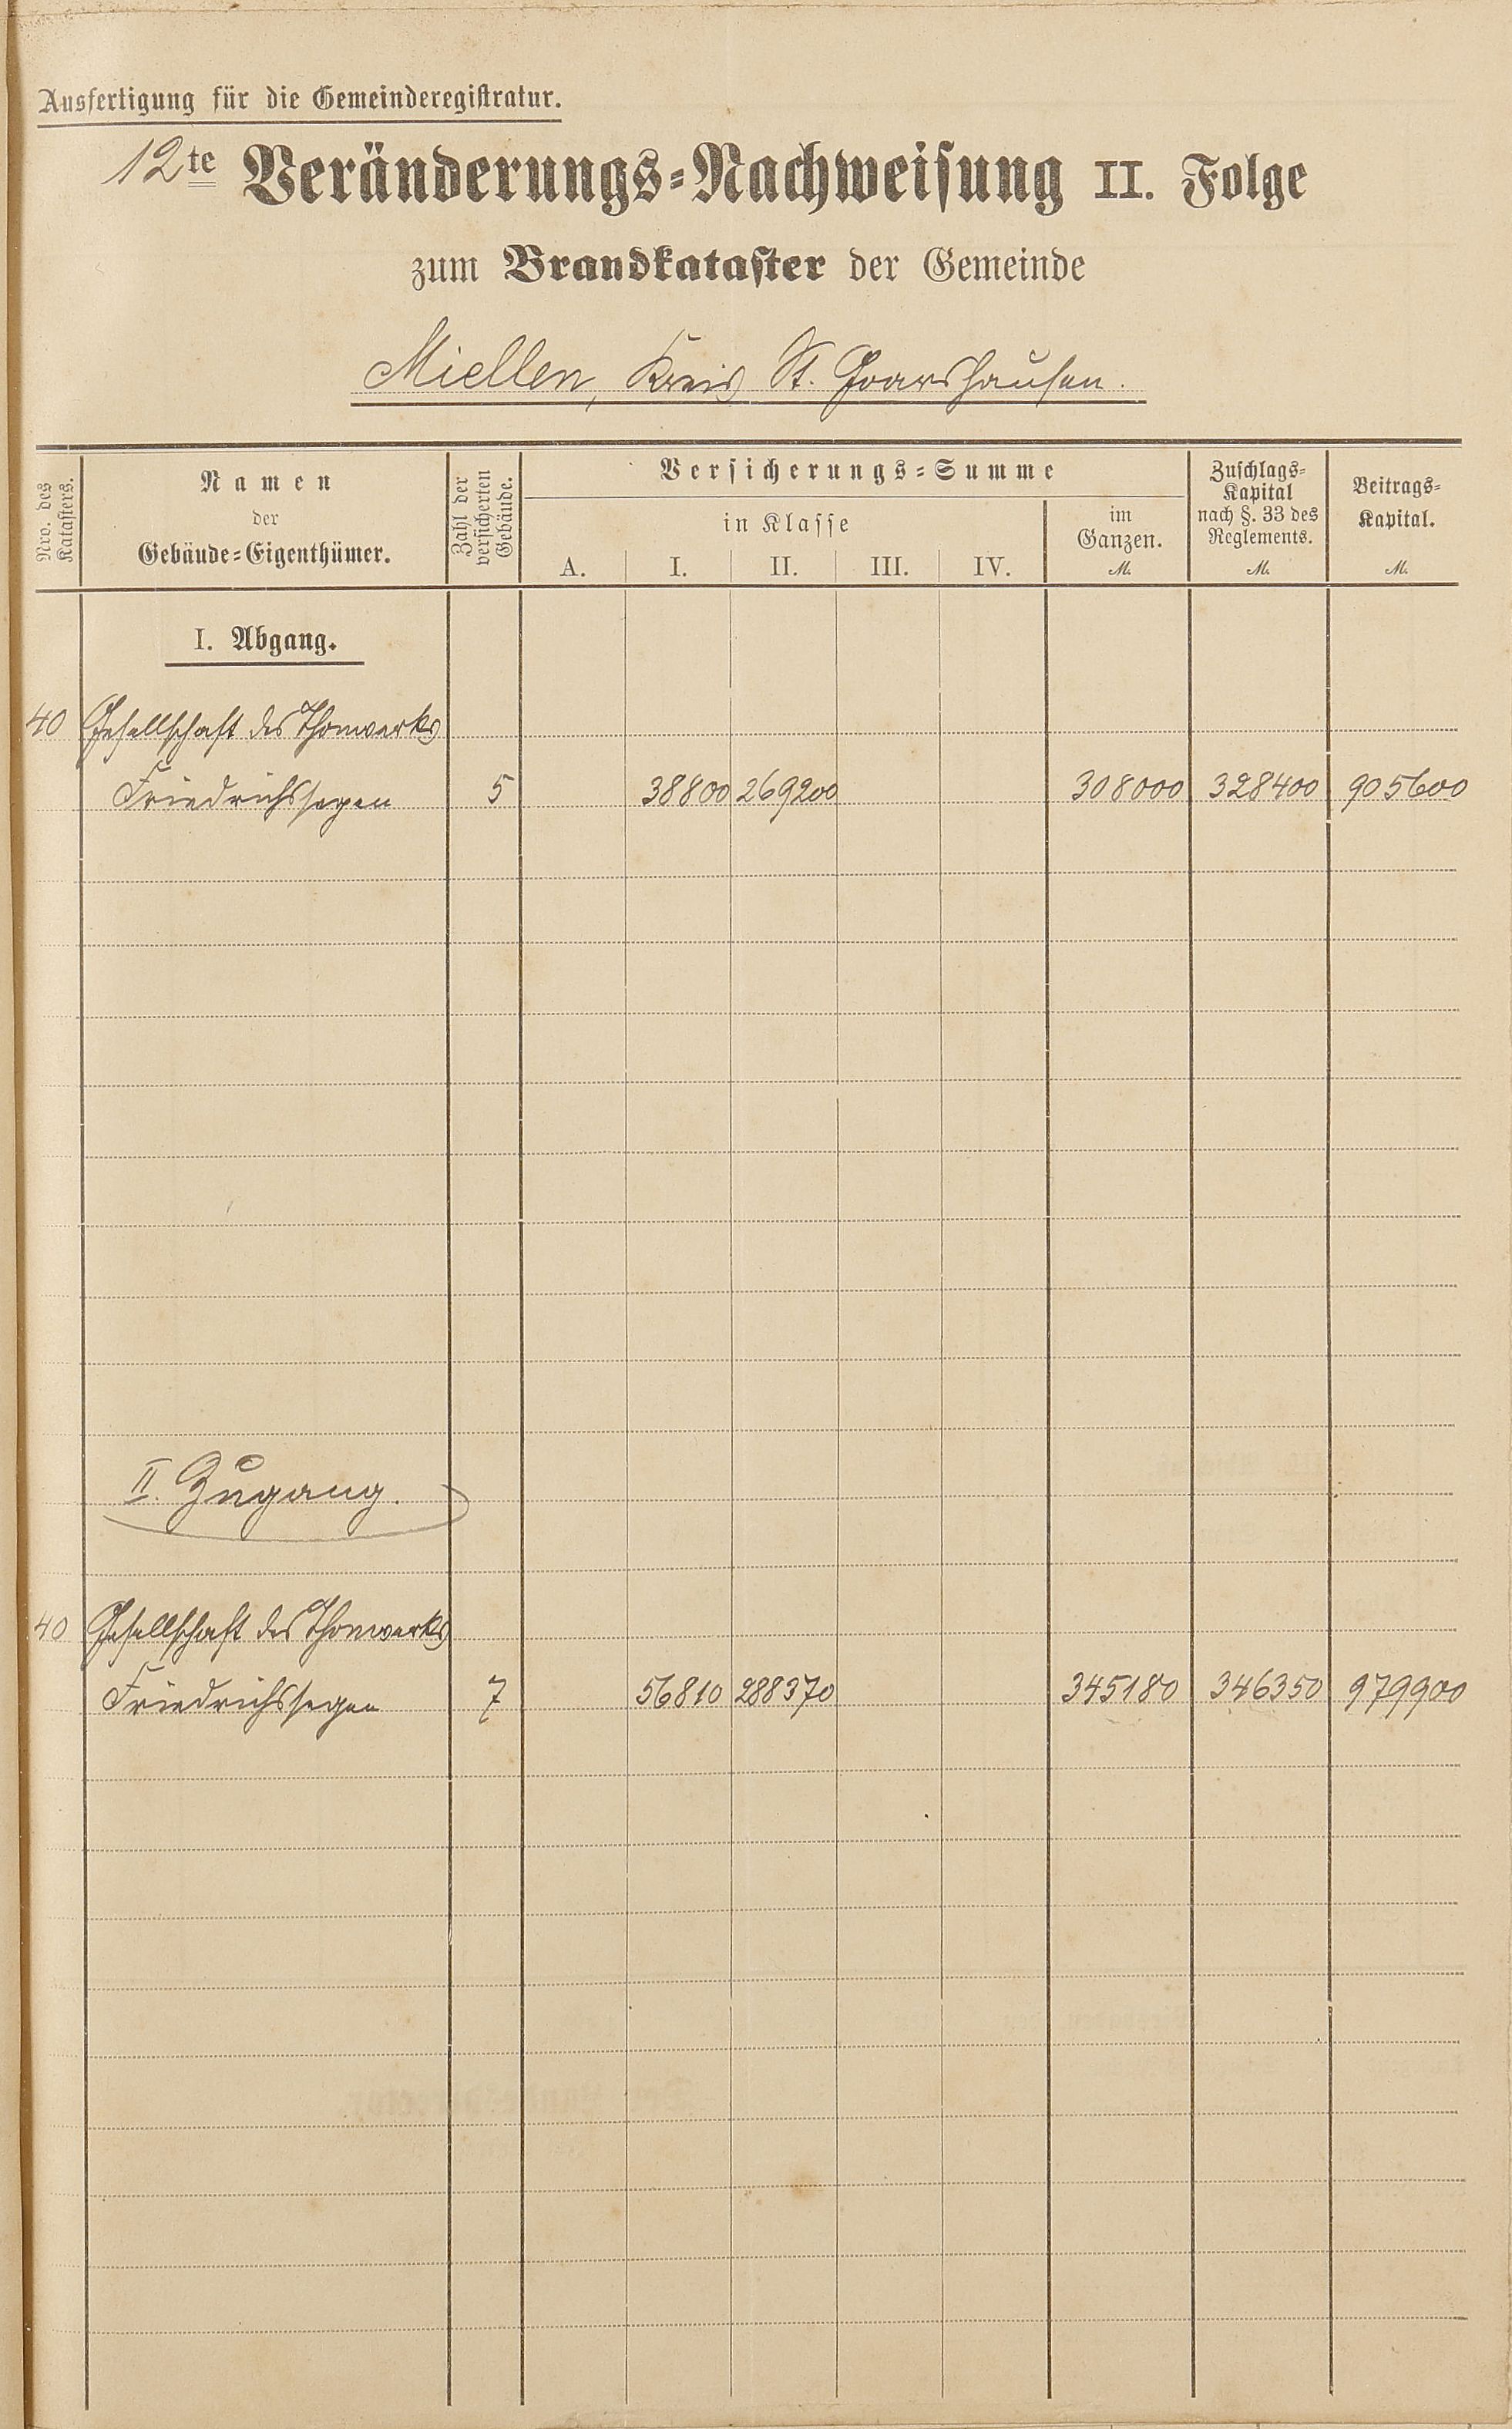 Ausfertigung für die Gemeinderegistratur.
12te Veränderungs=Nachweisung II. Folge
zum Brandkataster der Gemeinde
Miellen, Kreis St. Goarshausen.
Nro. des Katasters.
Namen
der
Gebäude=Eigenthümer.
Zahl der versicherten Gebäude.
Versicherungs=Summe
in Klasse
A. I. II. III. IV.
im
Ganzen.
M.
Zuschlags=
Kapital
nach §. 33 des
Reglements.
M.
Beitrags=
Kapital.
M.
I. Abgang.
40 Gesellschaft des Thonwerks
Friedrichssegen 5 38800 269200 308000 328400 905600
II. Zugang.
40 Gesellschaft des Thonwerks
Friedrichssegen 7 56810 288370 345180 346350 979900